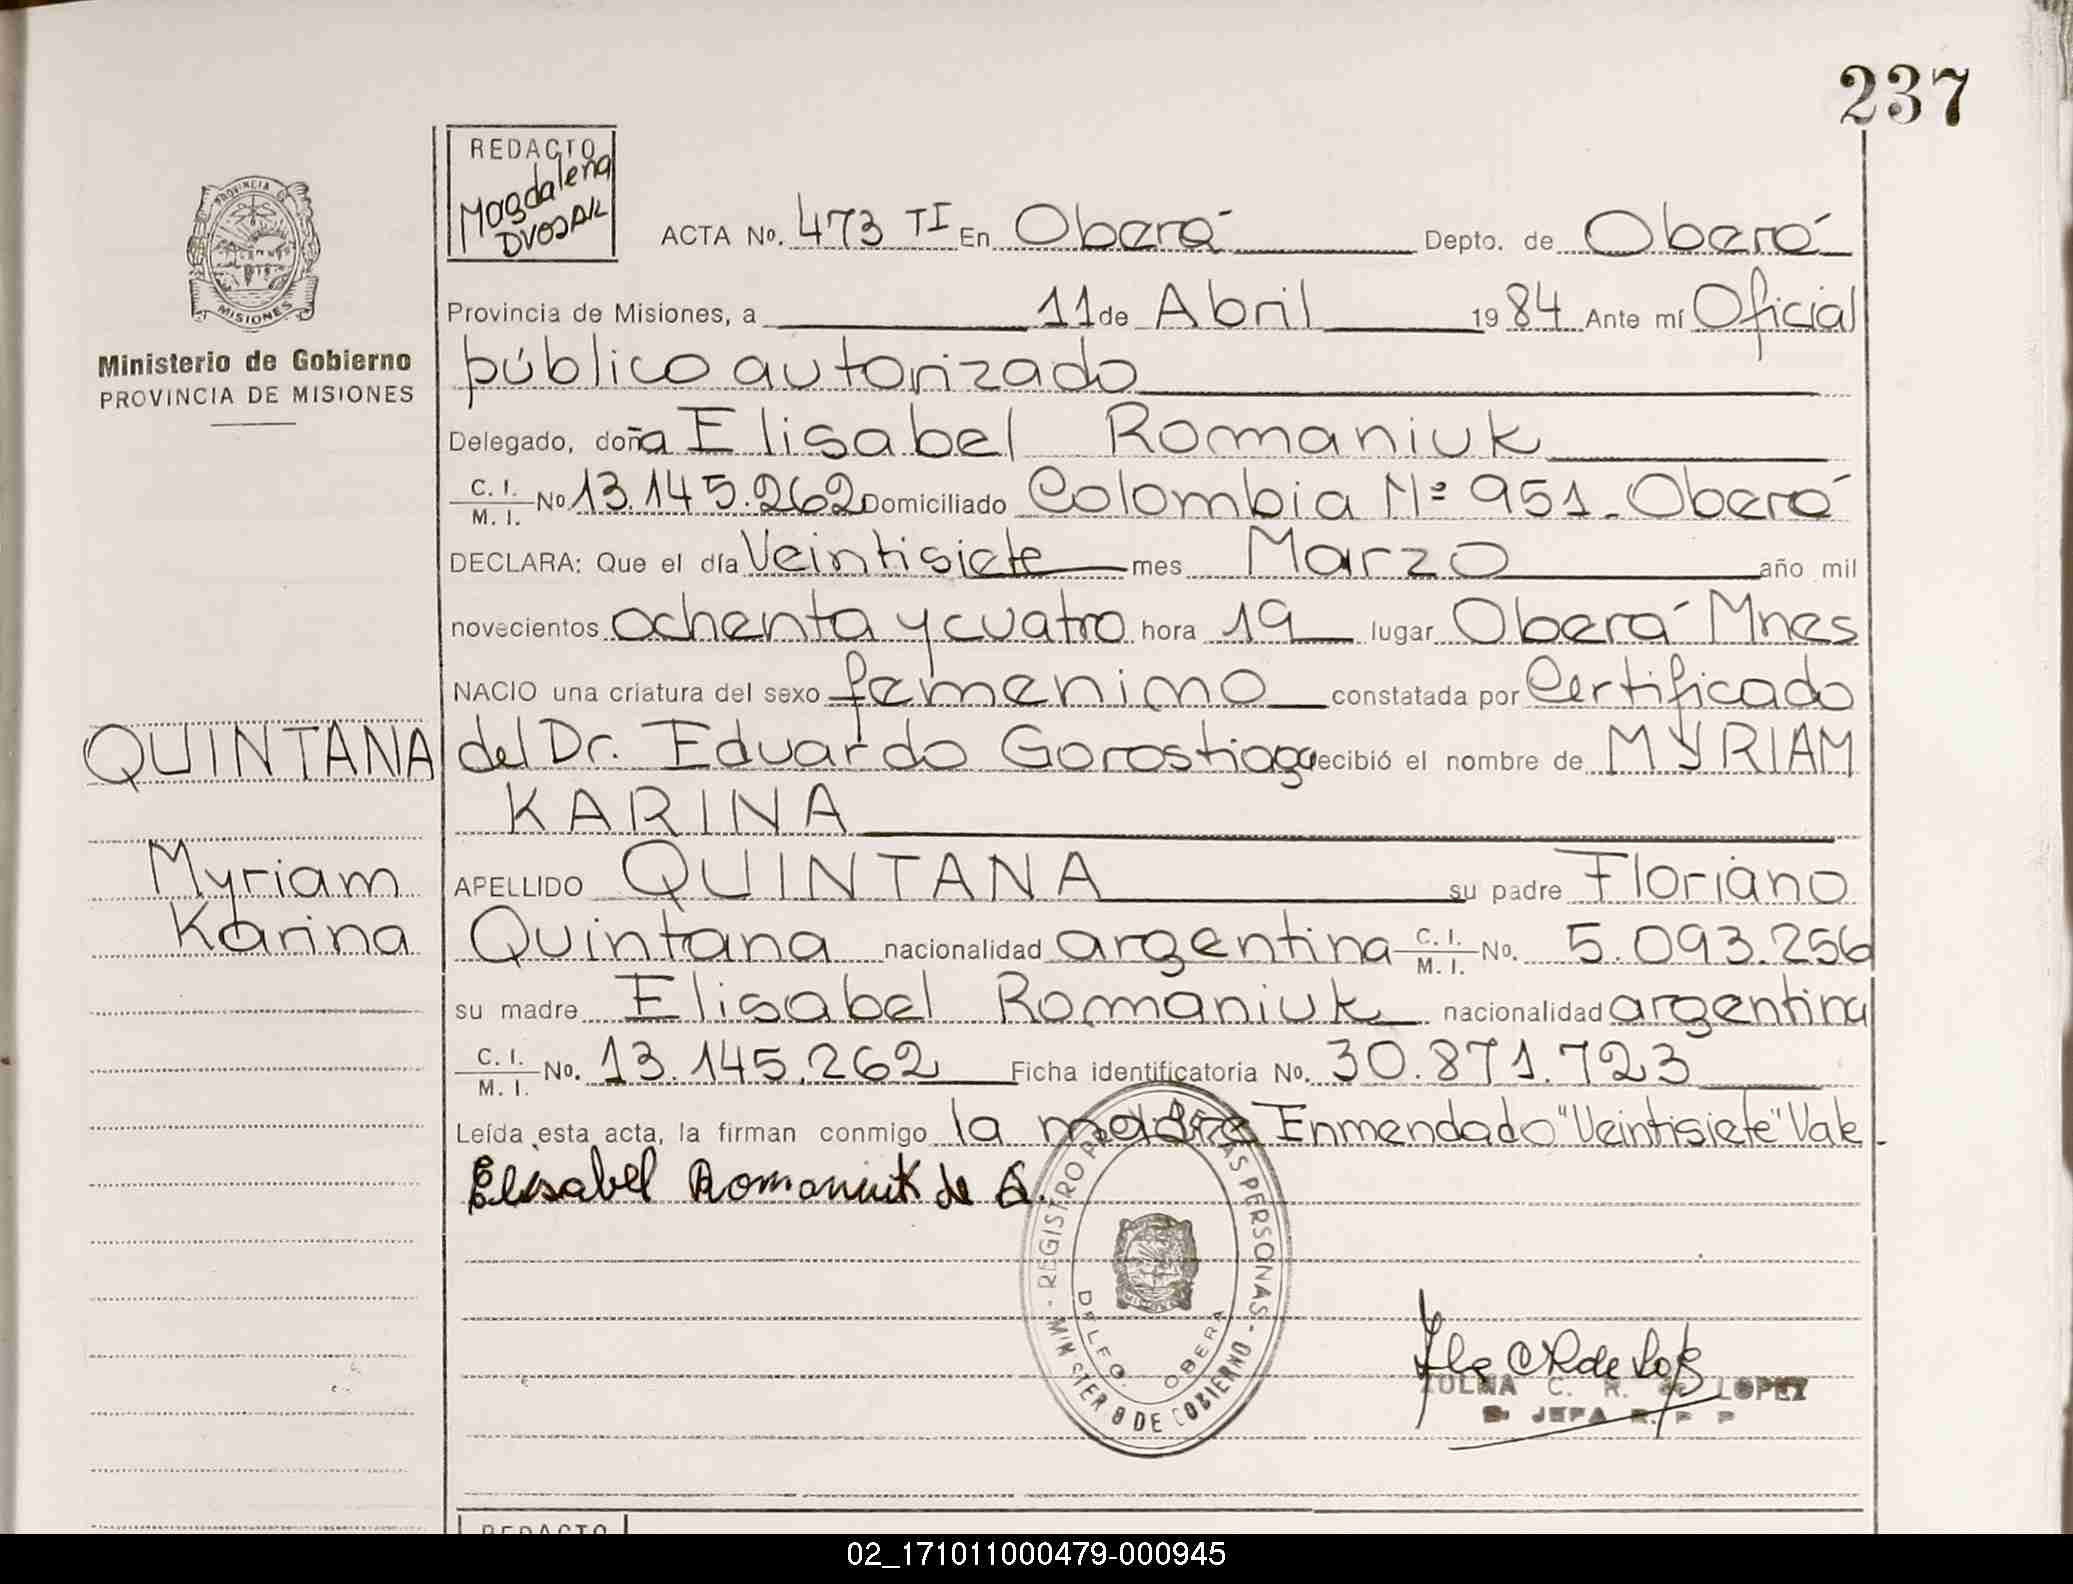 237
REDACTO
Magdalena
DVOJAK
PROVINCIA D
MISIONES
Ministerio de Gobierno
PROVINCIA DE MISIONES
ACTA No. 473 TI En Oberá Depto. de Oberá
Provincia de Misiones, a 11 de Abril 1984 Ante mí Oficial
público autorizado
Delegado, doña Elisabel Romaniuk
C. I. / M. I. No 13.145.262 Domiciliado Colombia Nº 951. Oberá
DECLARA: Que el día Veintisiete mes Marzo año mil
novecientos ochenta y cuatro hora 19 lugar Oberá Mnes
NACIO una criatura del sexo femenimo constatada por Certificado
del Dr. Eduardo Gorostiaga recibió el nombre de MYRIAM
KARINA
QUINTANA
Myriam
Karina
APELLIDO QUINTANA su padre Floriano
Quintana nacionalidad argentina C. I. / M. I. No. 5.093.256
su madre Elisabel Romaniuk nacionalidad argentina
C. I. / M. I. No. 13.145.262 Ficha identificatoria No. 30.871.723
Leída esta acta, la firman conmigo la madre Enmendado "Veintisiete" Vale.
Elisabel Romaniuk de Q.
- REGISTRO DE LAS PERSONAS -
MINISTERIO DE GOBIERNO
DELEG. OBERA
ZULMA C. R. de LOPEZ
JEFA R. P. P
REDACTO
02_171011000479-000945